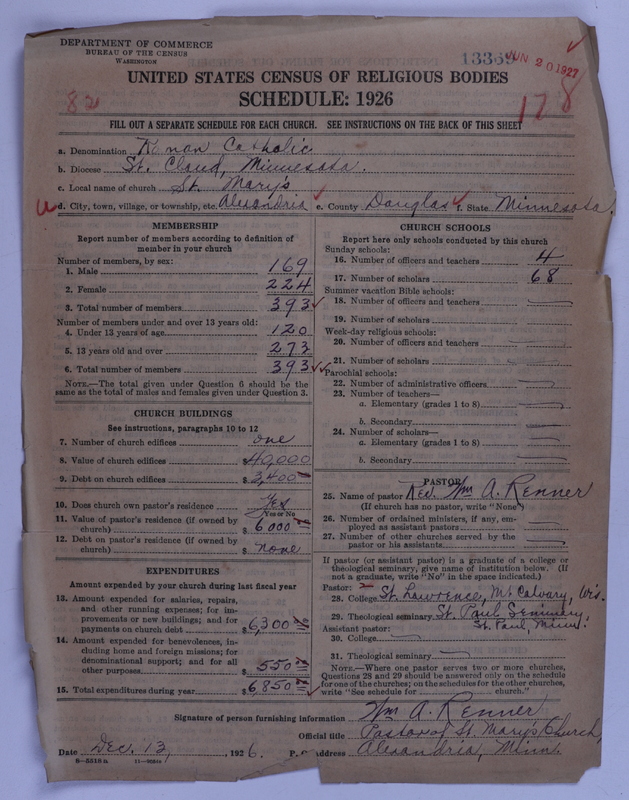 DEPARTMENT OF COMMERCE
BUREAU OF THE CENSUS
WASHINGTON
13369 JUN 20 1927
UNITED STATES CENSUS OF RELIGIOUS BODIES
SCHEDULE: 1926
82
178
FILL OUT A SEPARATE SCHEDULE FOR EACH CHURCH. SEE INSTRUCTIONS ON THE BACK OF THIS SHEET
a. Denomination Roman Catholic
b. Diocese St. Cloud, Minnesota.
c. Local name of church St. Mary's
d. City, town, village, or township, etc. Alexandria e. County Douglas f. State Minnesota.
MEMBERSHIP
Report number of members according to definition of member in your church
Number of members, by sex:
1. Male 169
2. Female 224
3. Total number of members 393
Number of members under and over 13 years old:
4. Under 13 years of age 120
5. 13 years old and over 273
6. Total number of members 393
NOTE.—The total given under Question 6 should be the
same as the total of males and females given under Question 3.
CHURCH BUILDINGS
See instructions, paragraphs 10 to 12
7. Number of church edifices one
8. Value of church edifices $40,000
9. Debt on church edifices $3,400 00
10. Does church own pastor's residence Yes
Yes or No
11. Value of pastor's residence (if owned by
church) $6000 00
12. Debt on pastor's residence (if owned by
church) $ none
EXPENDITURES
Amount expended by your church during last fiscal year
13. Amount expended for salaries, repairs,
and other running expenses; for im-
provements or new buildings; and for
payments on church debt $6,300 00
14. Amount expended for benevolences, in-
cluding home and foreign missions; for
denominational support; and for all
other purposes $550 00
15. Total expenditures during year $6,850 00
CHURCH SCHOOLS
Report here only schools conducted by this church
Sunday schools:
16. Number of officers and teachers 4
17. Number of scholars 68
Summer vacation Bible schools:
18. Number of officers and teachers
19. Number of scholars
Week-day religious schools:
20. Number of officers and teachers
21. Number of scholars
Parochial schools:
22. Number of administrative officers
23. Number of teachers—
a. Elementary (grades 1 to 8)
b. Secondary
24. Number of scholars—
a. Elementary (grades 1 to 8)
b. Secondary
PASTOR
25. Name of pastor Rev. Wm A. Renner
(If church has no pastor, write "None")
26. Number of ordained ministers, if any, em-
ployed as assistant pastors
27. Number of other churches served by the
pastor or his assistants
If pastor (or assistant pastor) is a graduate of a college or
theological seminary, give name of institution below. (If
not a graduate, write "No" in the space indicated.)
Pastor:
28. College St. Lawrence, Mt Calvary, Wis.
29. Theological seminary St. Paul Seminary,
Assistant pastor: St. Paul, Minn.
30. College
31. Theological seminary
NOTE.—Where one pastor serves two or more churches,
Questions 28 and 29 should be answered only on the schedule
for one of the churches; on the schedules for the other churches,
write "See schedule for church."
Signature of person furnishing information Wm A. Renner
Official title Pastor of St. Mary's Church,
Date Dec. 13, 1926. P. O. address Alexandria, Minn.